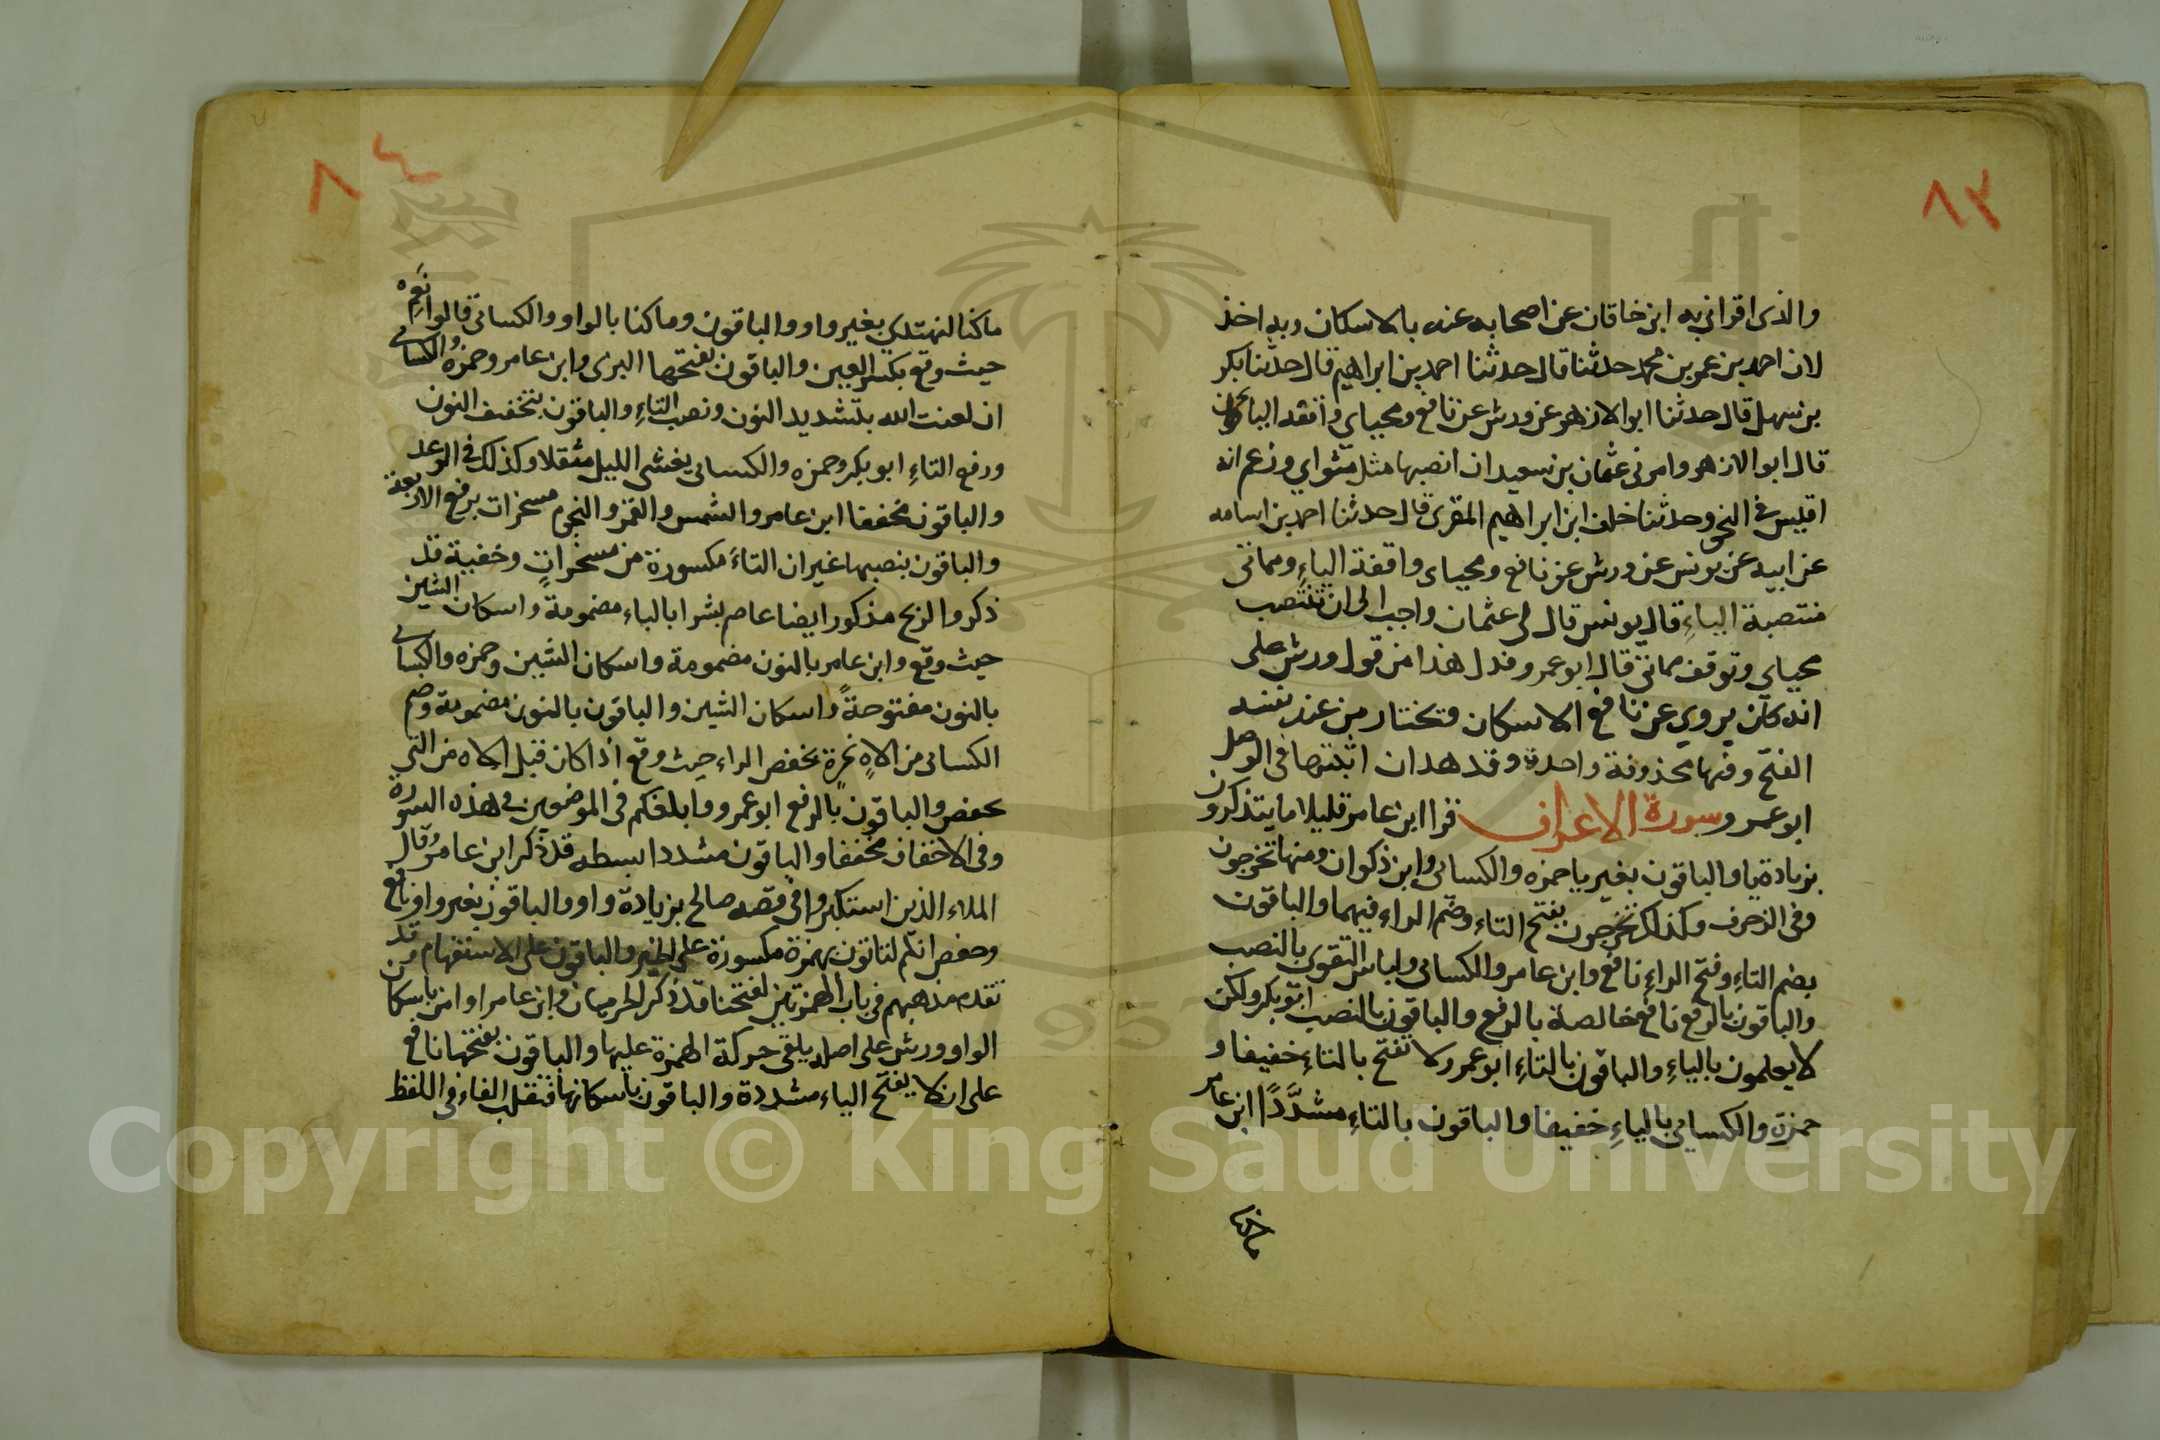 ٨٣
والذى اقرانى به ابن خاقان عن اصحابه عنه بالاسكان وبه اخذ
لان احمد بن عمر بن محمد حدثنا قال حدثنا احمد بن ابراهيم قال حدثنا بكر
بن سهل قال حدثنا ابو الازهر عن ورش عن نافع ومحياي واقفه الياء
قال ابو الازهر وامرنى عثمان بن سعيد ان انصبها مثل مثواي وزعم انه
اقيس فى النحو وحدثنا خلف ابن ابراهيم المقرى قال حدثنا احمد بن اسامه
عن ابيه عن يونس عن ورش عن نافع ومحياى واقفة الياءِ ومماتى
منتصبة الياءِ قال يونس قال لى عثمان واجب الى ان تنتصب
محياى وتوقف مماتى قال ابو عمرو فدل هذا من قول ورش على
انه كان يروي عن نافع الاسكان وتختار من عند نفسه
الفتح وفيها محذوفة واحدة وقد هدان اثبتها فى الوصل
ابو عمرو سورة الاعراف قرا ابن عامر قليلا ما يتذكرون
بزيادة يا والباقون بغير يا حمزه والكسائى وابن ذكوان ومنها تخرجون
وفى الزخرف وكذلك تخرجون بفتح التاء وضم الراءِ فيهما والباقون
بضم التاءِ وفتح الراءِ نافع وابن عامر والكسائى ولباس التقوى بالنصب
والباقون بالرفع نافع خالصة بالرفع والباقون بالنصب ابو بكر ولكن
لا يعلمون بالياءِ والباقون بالتاءِ ابو عمرو لا تفتح بالتاءِ خفيفا و
حمزة والكسائي بالياءِ خفيفا والباقون بالتاءِ مشدَّدًا ابن عامر
ماكنا
٨٤
ماكنا لنهتدي بغير واو والباقون وماكنا بالواو والكسائى قالوا نَعِم
حيث وقع بكسر العين والباقون بفتحها البزى وابن عامر وحمزه والكسائى
ان لعنت الله بتشديد النون ونصب التاءِ والباقون بتخفيف النون
ورفع التاءِ ابو بكر وحمزه والكسائى يغشى الليل مثقلا وكذلك فى الرعد
والباقون مخففا ابن عامر والشمس والقمر والنجوم مسخرات برفع الاربعة
والباقون بنصبها غير ان التاءَ مكسورة من مسخراتٍ وخفية قد
ذكر والريح مذكور ايضا عاصم بشرا بالباء مضمومة واسكان الشين
حيث وقع وابن عامر بالنون مضمومة واسكان الشين وحمزه والكسائى
بالنون مفتوحةً واسكان الشين والباقون بالنون مضمومة وضم
الكسائى من الاهٍ غيرة بخفض الراء حيث وقع اذا كان قبل الاه من التى
بخفض والباقون بالرفع ابو عمرو وابلغكم فى الموضعين فى هذه السورة
وفى الاحقاف مخففا والباقون مشددا بسطه قد ذكر ابن عامر وقال
الملاء الذين استكبروا فى قصه صالح بزيادة واو والباقون بغير واو نافع
وحفص انكم لتاتون بهمزة مكسورة على الخبر والباقون على الاستفهام وقد
تقدم مذهبهم فى باب الهمزتين لفتحنا قد ذكر الحرميان وابن عامر او امن باسكان
الواو وورش على اصله يلقى حركة الهمزة عليها والباقون بفتحها نافع
على ان لا يفتح الياء مشددة والباقون باسكانها فتقلب الفاء فى اللفظ
Copyright © King Saud University
1957